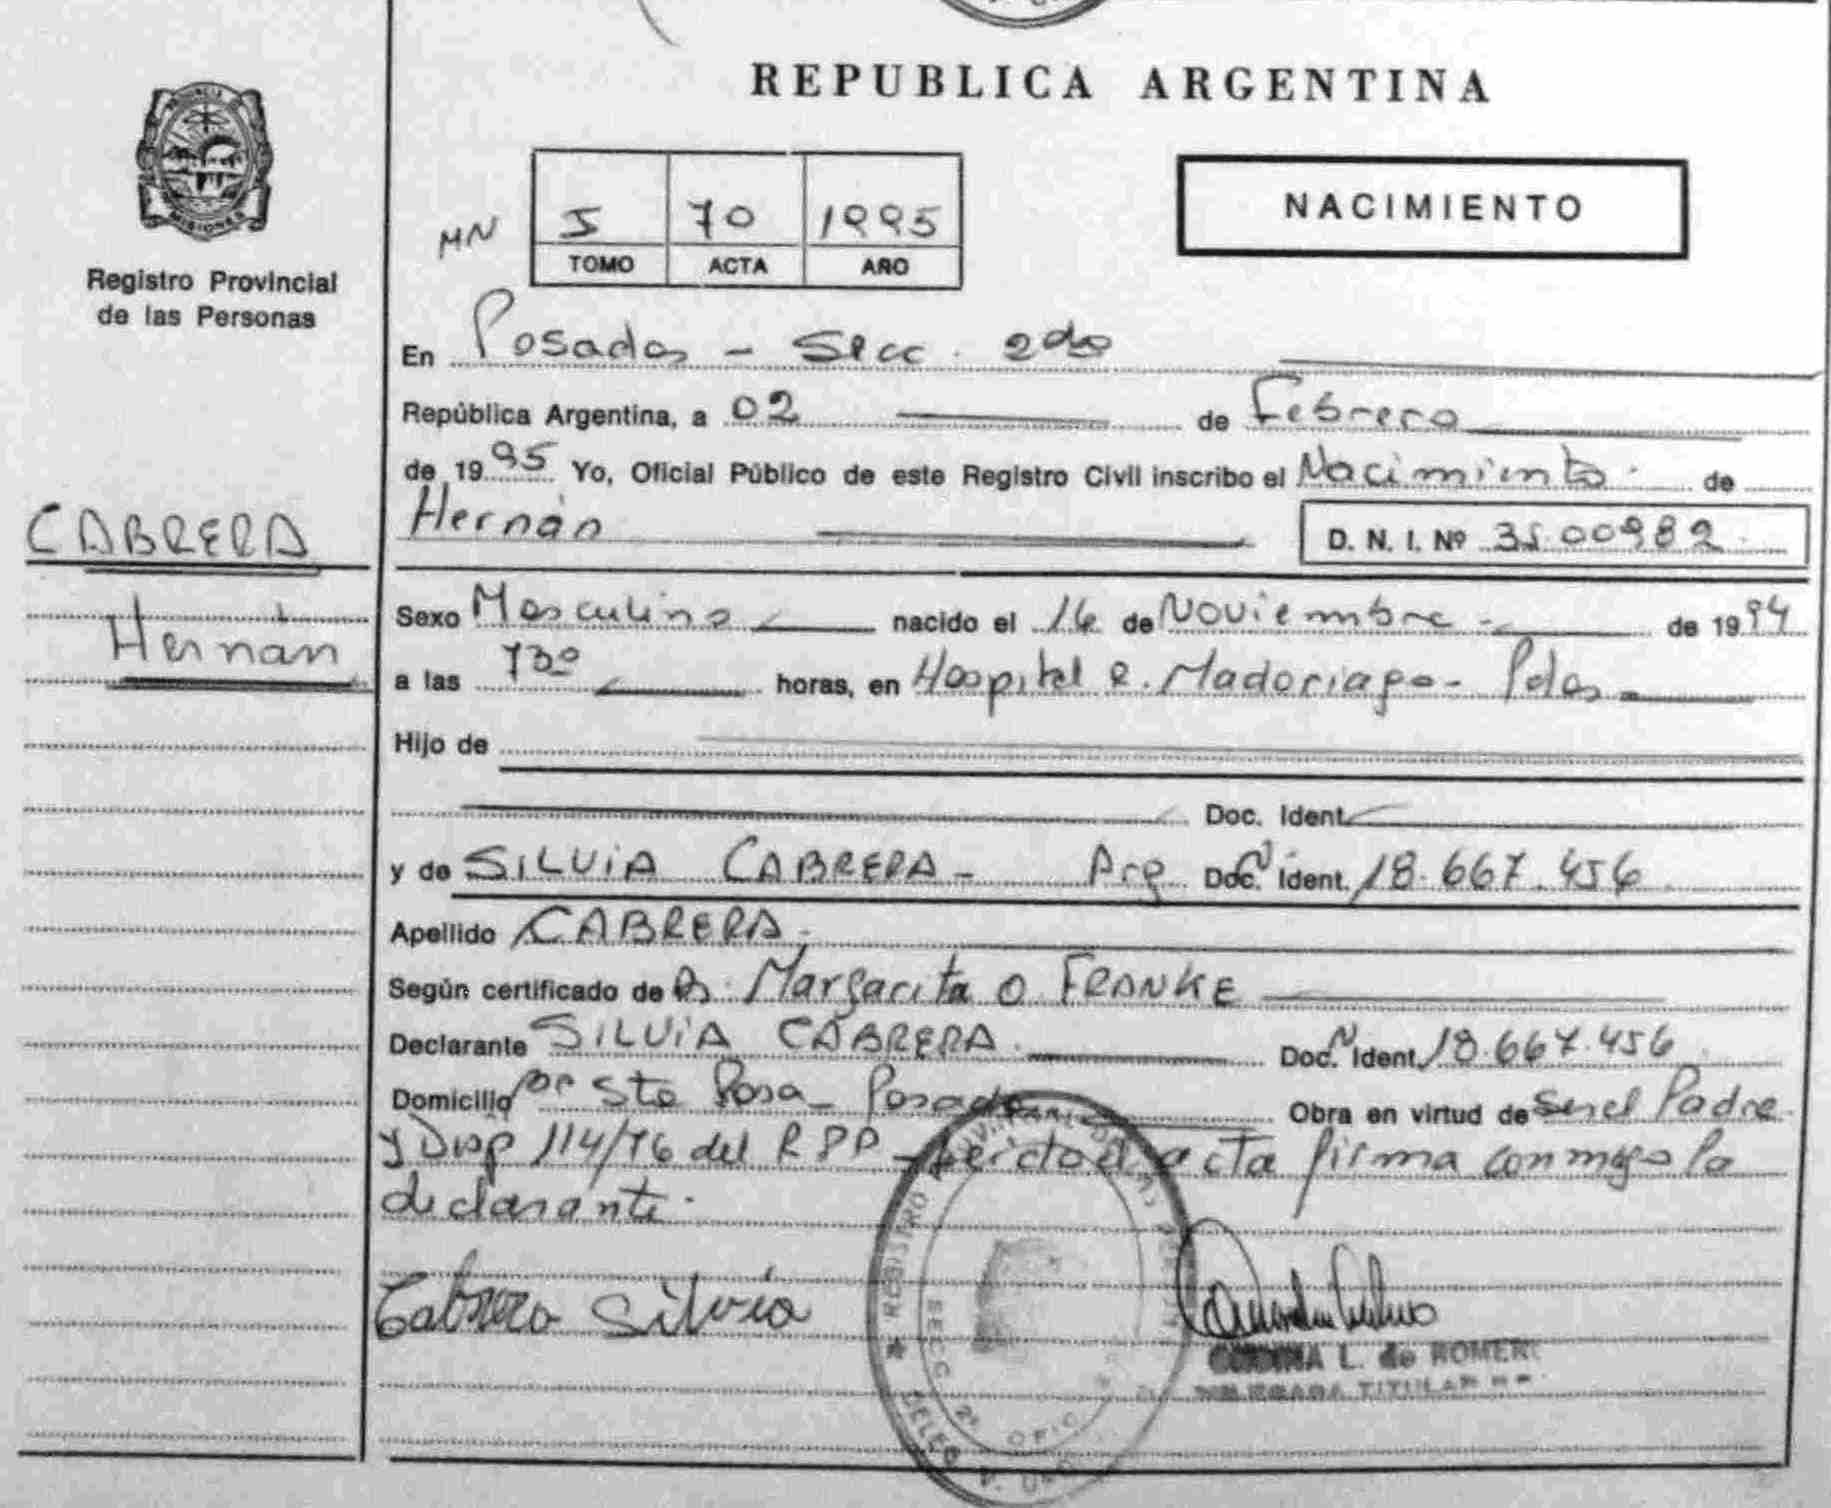 REPUBLICA ARGENTINA
PROVINCIA DE
MISIONES
Registro Provincial
de las Personas
NACIMIENTO
MN
70 1995
TOMO ACTA AÑO
En Posadas - Secc. 2da
República Argentina, a 02 de Febrero
de 1995 Yo, Oficial Público de este Registro Civil inscribo el Nacimiento de
Hernán D. N. I. Nº
CABRERA
Hernán
Sexo Masculino nacido el 16 de Noviembre - de 1994
a las 730 horas, en Hospital R. Madariaga - Pdas
Hijo de
Doc. Ident.
y de SILVIA CABRERA - Arg Doc. Ident. 18.667.456
Apellido CABRERA.
Según certificado de Margarita O FRANKE
Declarante SILVIA CABRERA. Doc. Ident. 18.667.456
Domicilio Sta Rosa - Posadas Obra en virtud de ser el Padre
y Disp 114/76 del RPP - acta firma conmigo la
declarante.
Cabrera Silvia
REGISTRO PROVINCIAL DE LAS PERSONAS
SECC 2ª
L. de ROMERO
DELEGADA TITULAR